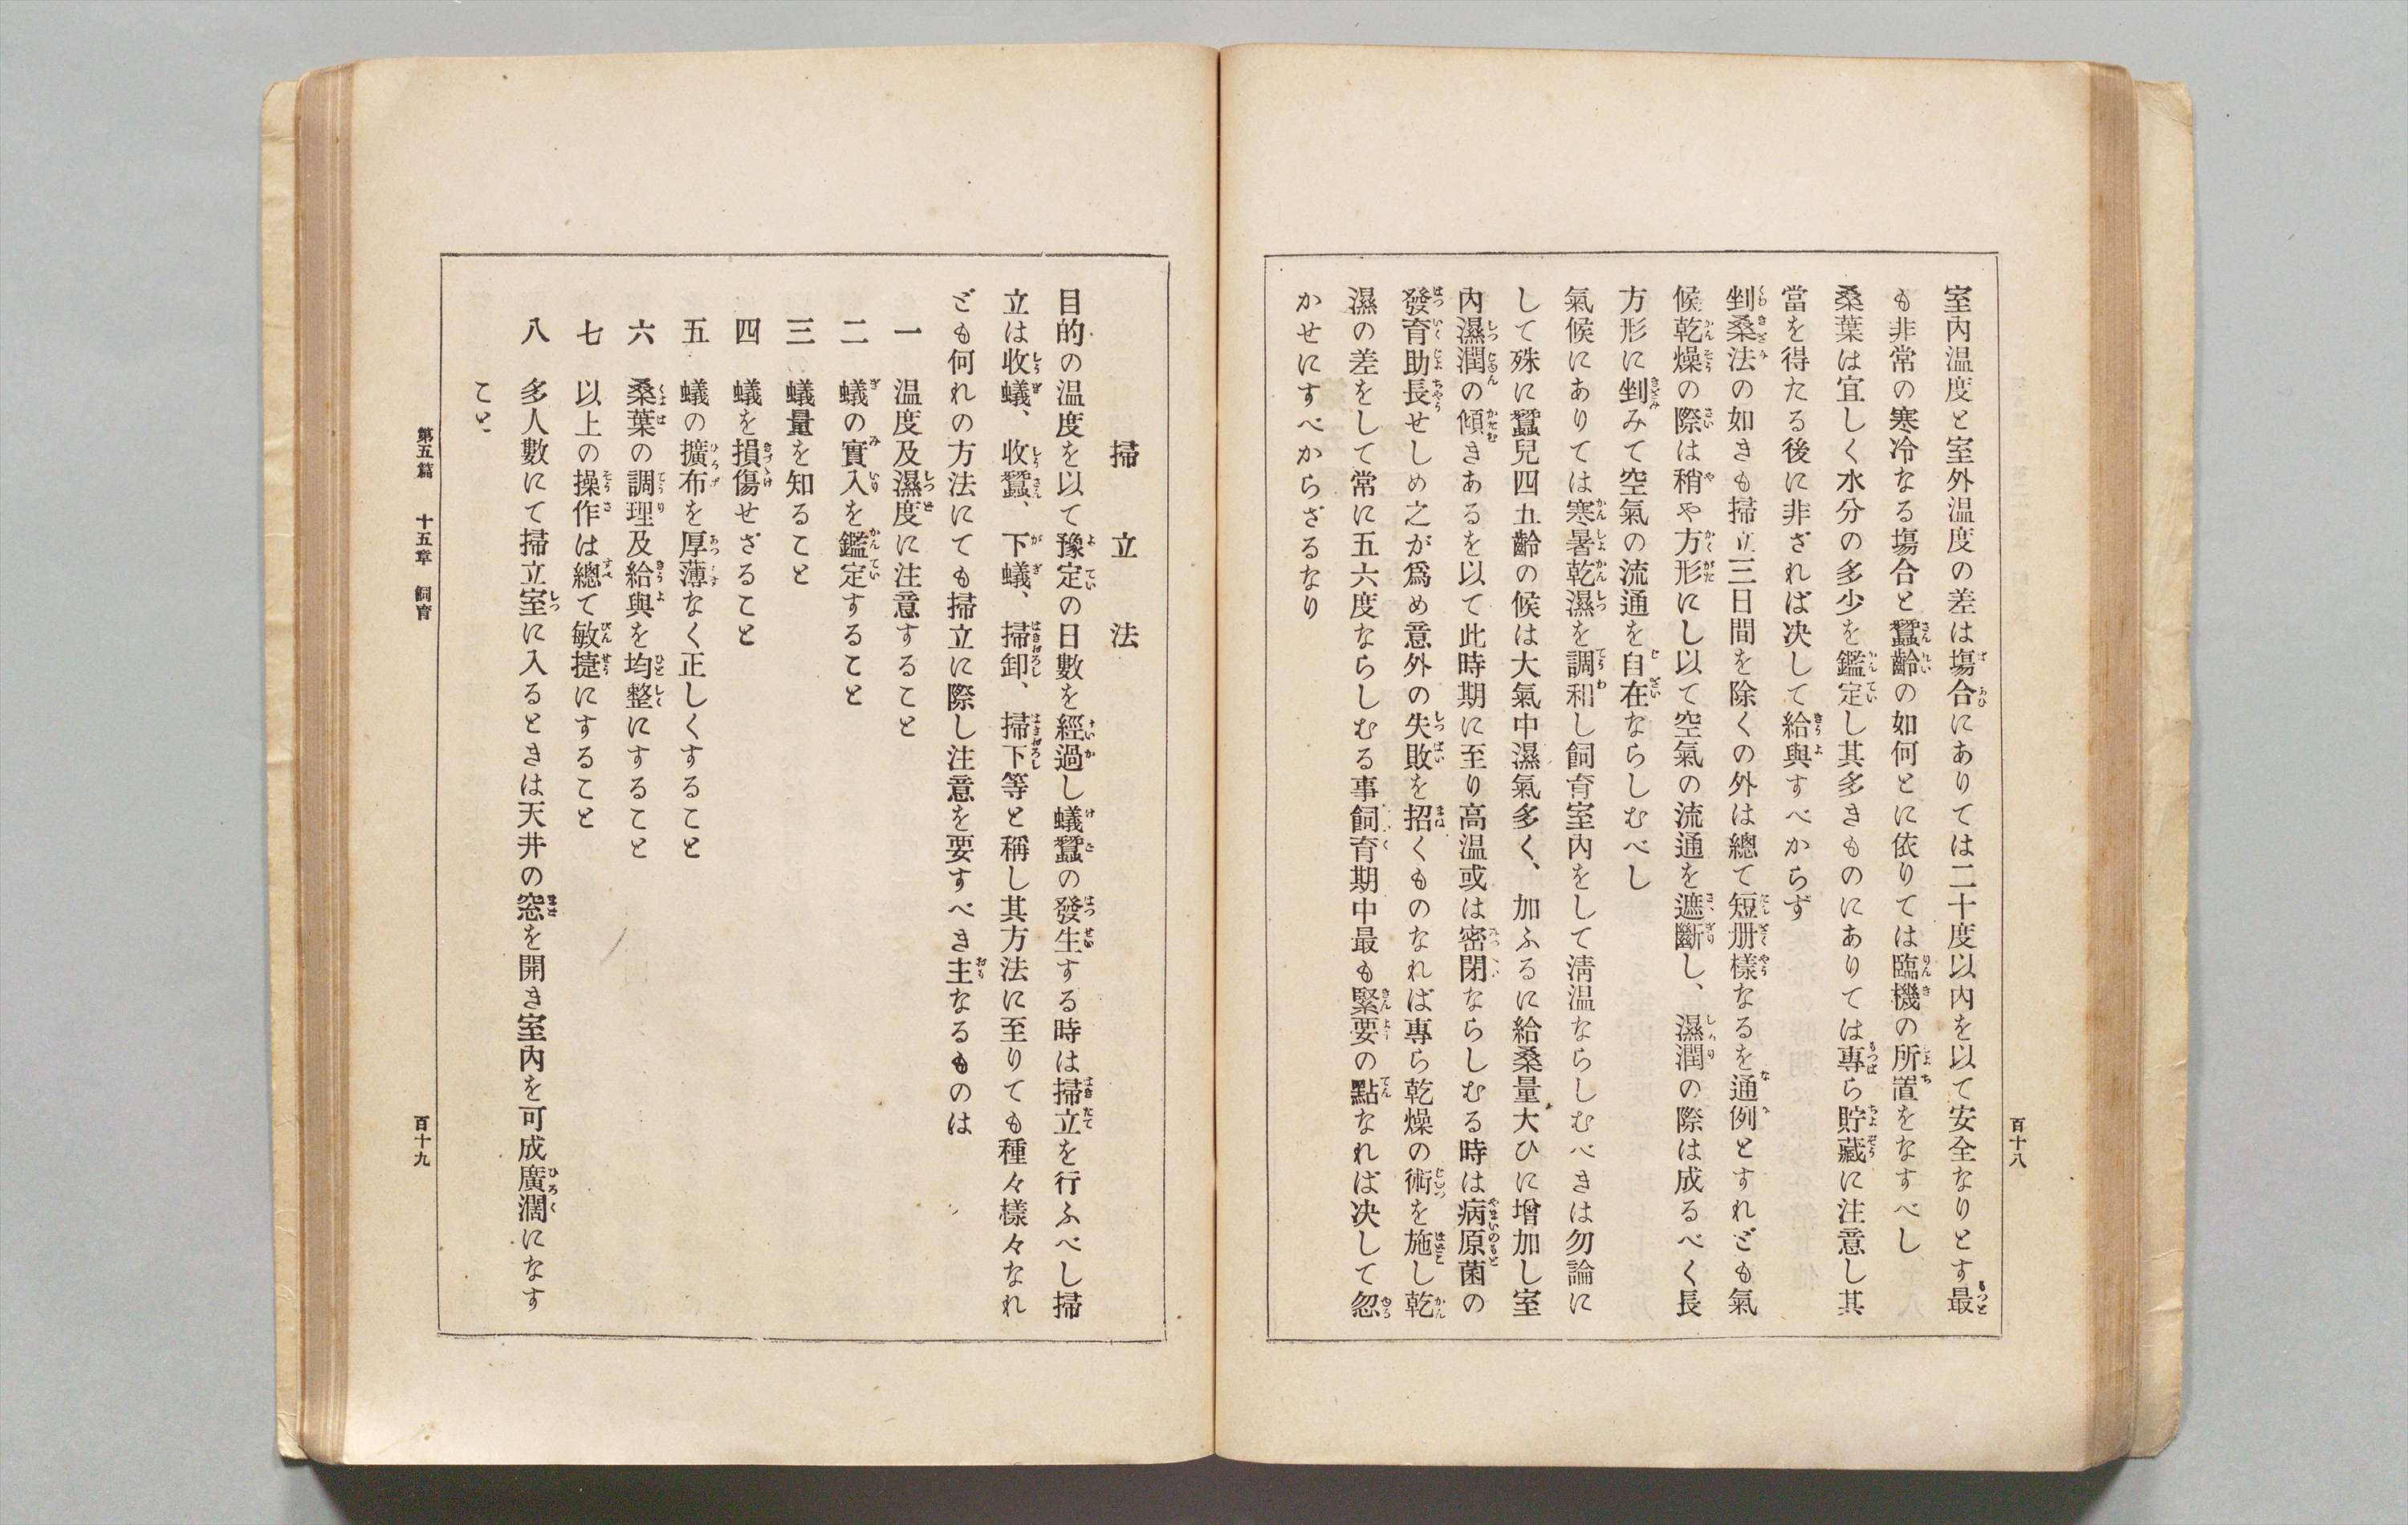 室內温度と室外温度の差は塲合にありては二十度以內を以て安全なりとす最
も非常の寒冷なる塲合と蠶齡の如何とに依りては臨機の所置をなすべし
桑葉は宜しく水分の多少を鑑定し其多きものにありては專ら貯藏に注意し其
當を得たる後に非ざれば决して給與すべからず
剉桑法の如きも掃立三日間を除くの外は總て短册樣なるを通例とすれども氣
候乾燥の際は稍や方形にし以て空氣の流通を遮斷し、濕潤の際は成るべく長
方形に剉みて空氣の流通を自在ならしむべし
氣候にありては寒暑乾濕を調和し飼育室內をして淸温ならしむべきは勿論に
して殊に蠶兒四五齡の候は大氣中濕氣多く、加ふるに給桑量大ひに增加し室
內濕潤の傾きあるを以て此時期に至り高温或は密閉ならしむる時は病原菌の
發育助長せしめ之が爲め意外の失敗を招くものなれば專ら乾燥の術を施し乾
濕の差をして常に五六度ならしむる事飼育期中最も緊要の點なれば决して忽
かせにすべからざるなり
百十八
掃立法
目的の温度を以て豫定の日數を經過し蟻蠶の發生する時は掃立を行ふべし掃
立は收蟻、收蠶、下蟻、掃卸、掃下等と稱し其方法に至りても種々樣々なれ
ども何れの方法にても掃立に際し注意を要すべき主なるものは
一 温度及濕度に注意すること
二 蟻の實入を鑑定すること
三 蟻量を知ること
四 蟻を損傷せざること
五 蟻の擴布を厚薄なく正しくすること
六 桑葉の調理及給與を均整にすること
七 以上の操作は總て敏捷にすること
八 多人數にて掃立室に入るときは天井の窓を開き室內を可成廣濶になす
こと
第五篇 十五章 飼育
百十九